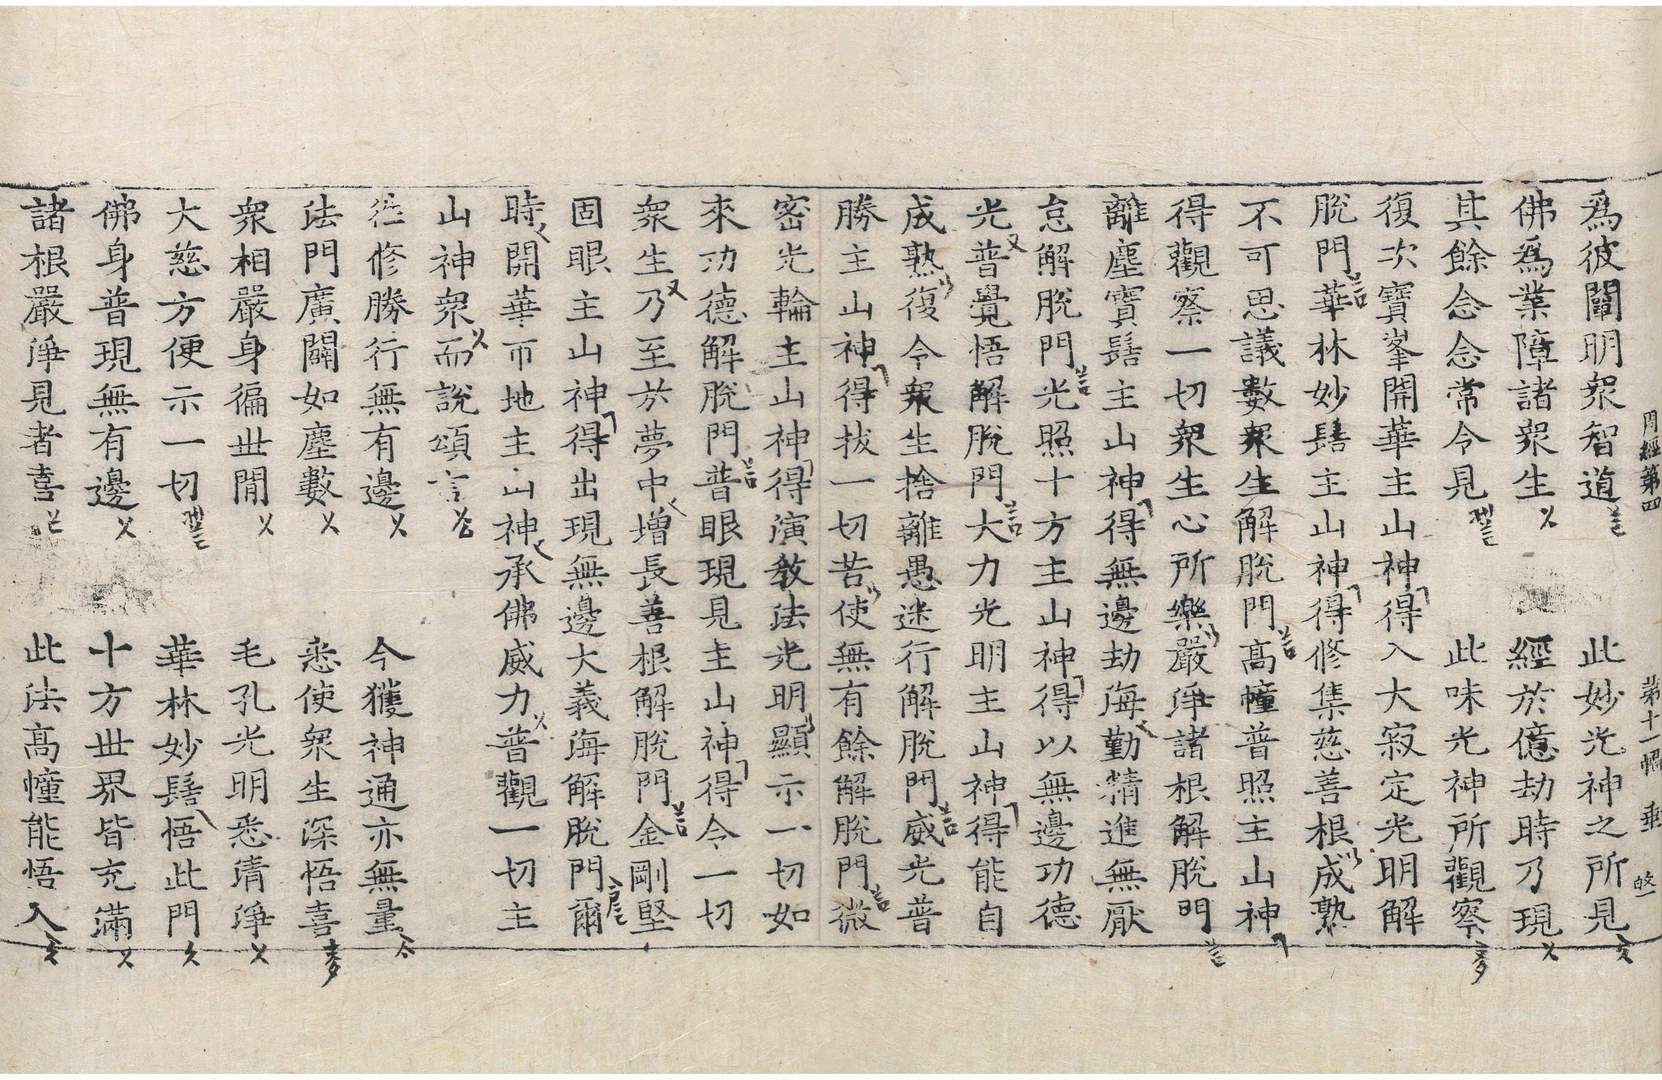 周經第四 第十一幅 垂
為彼闡明眾智道 此妙光神之所見
佛為業障諸眾生 經於億劫時乃現
其餘念念念常令見 此味光神所觀察
復次寶峯開華主山神得入大寂定光明解
脫門華林妙髻主山神得修集慈善根成熟
不可思議數衆生解脫門高幢普照主山神
得觀察一切眾生心所樂嚴淨諸根解脫門
離塵寶髻主山神得無邊劫海勤精進無厭
怠解脫門光照十方主山神得以無邊功德
光普覺悟解脫門大力光明主山神得能自
成熟復令衆生捨離愚迷行解脫門威光普
勝主山神得拔一切苦使無有餘解脫門微
密光輪主山神得演教法光明顯示一切如
來功德解脫門普眼現見主山神得令一切
眾生乃至於夢中增長善根解脫門金剛堅
固眼主山神得出現無邊大義海解脫門爾
時開華帀地主山神承佛威力普觀一切主
山神眾而說頌言
往修勝行無有邊 今獲神通亦無量
法門廣闢如塵數 悉使眾生深悟喜
眾相嚴身徧世閒 毛孔光明悉清淨
大慈方便示一切 華林妙髻悟此門
佛身普現無有邊 十方世界皆充滿
諸根嚴淨見者喜 此法高幢能悟入